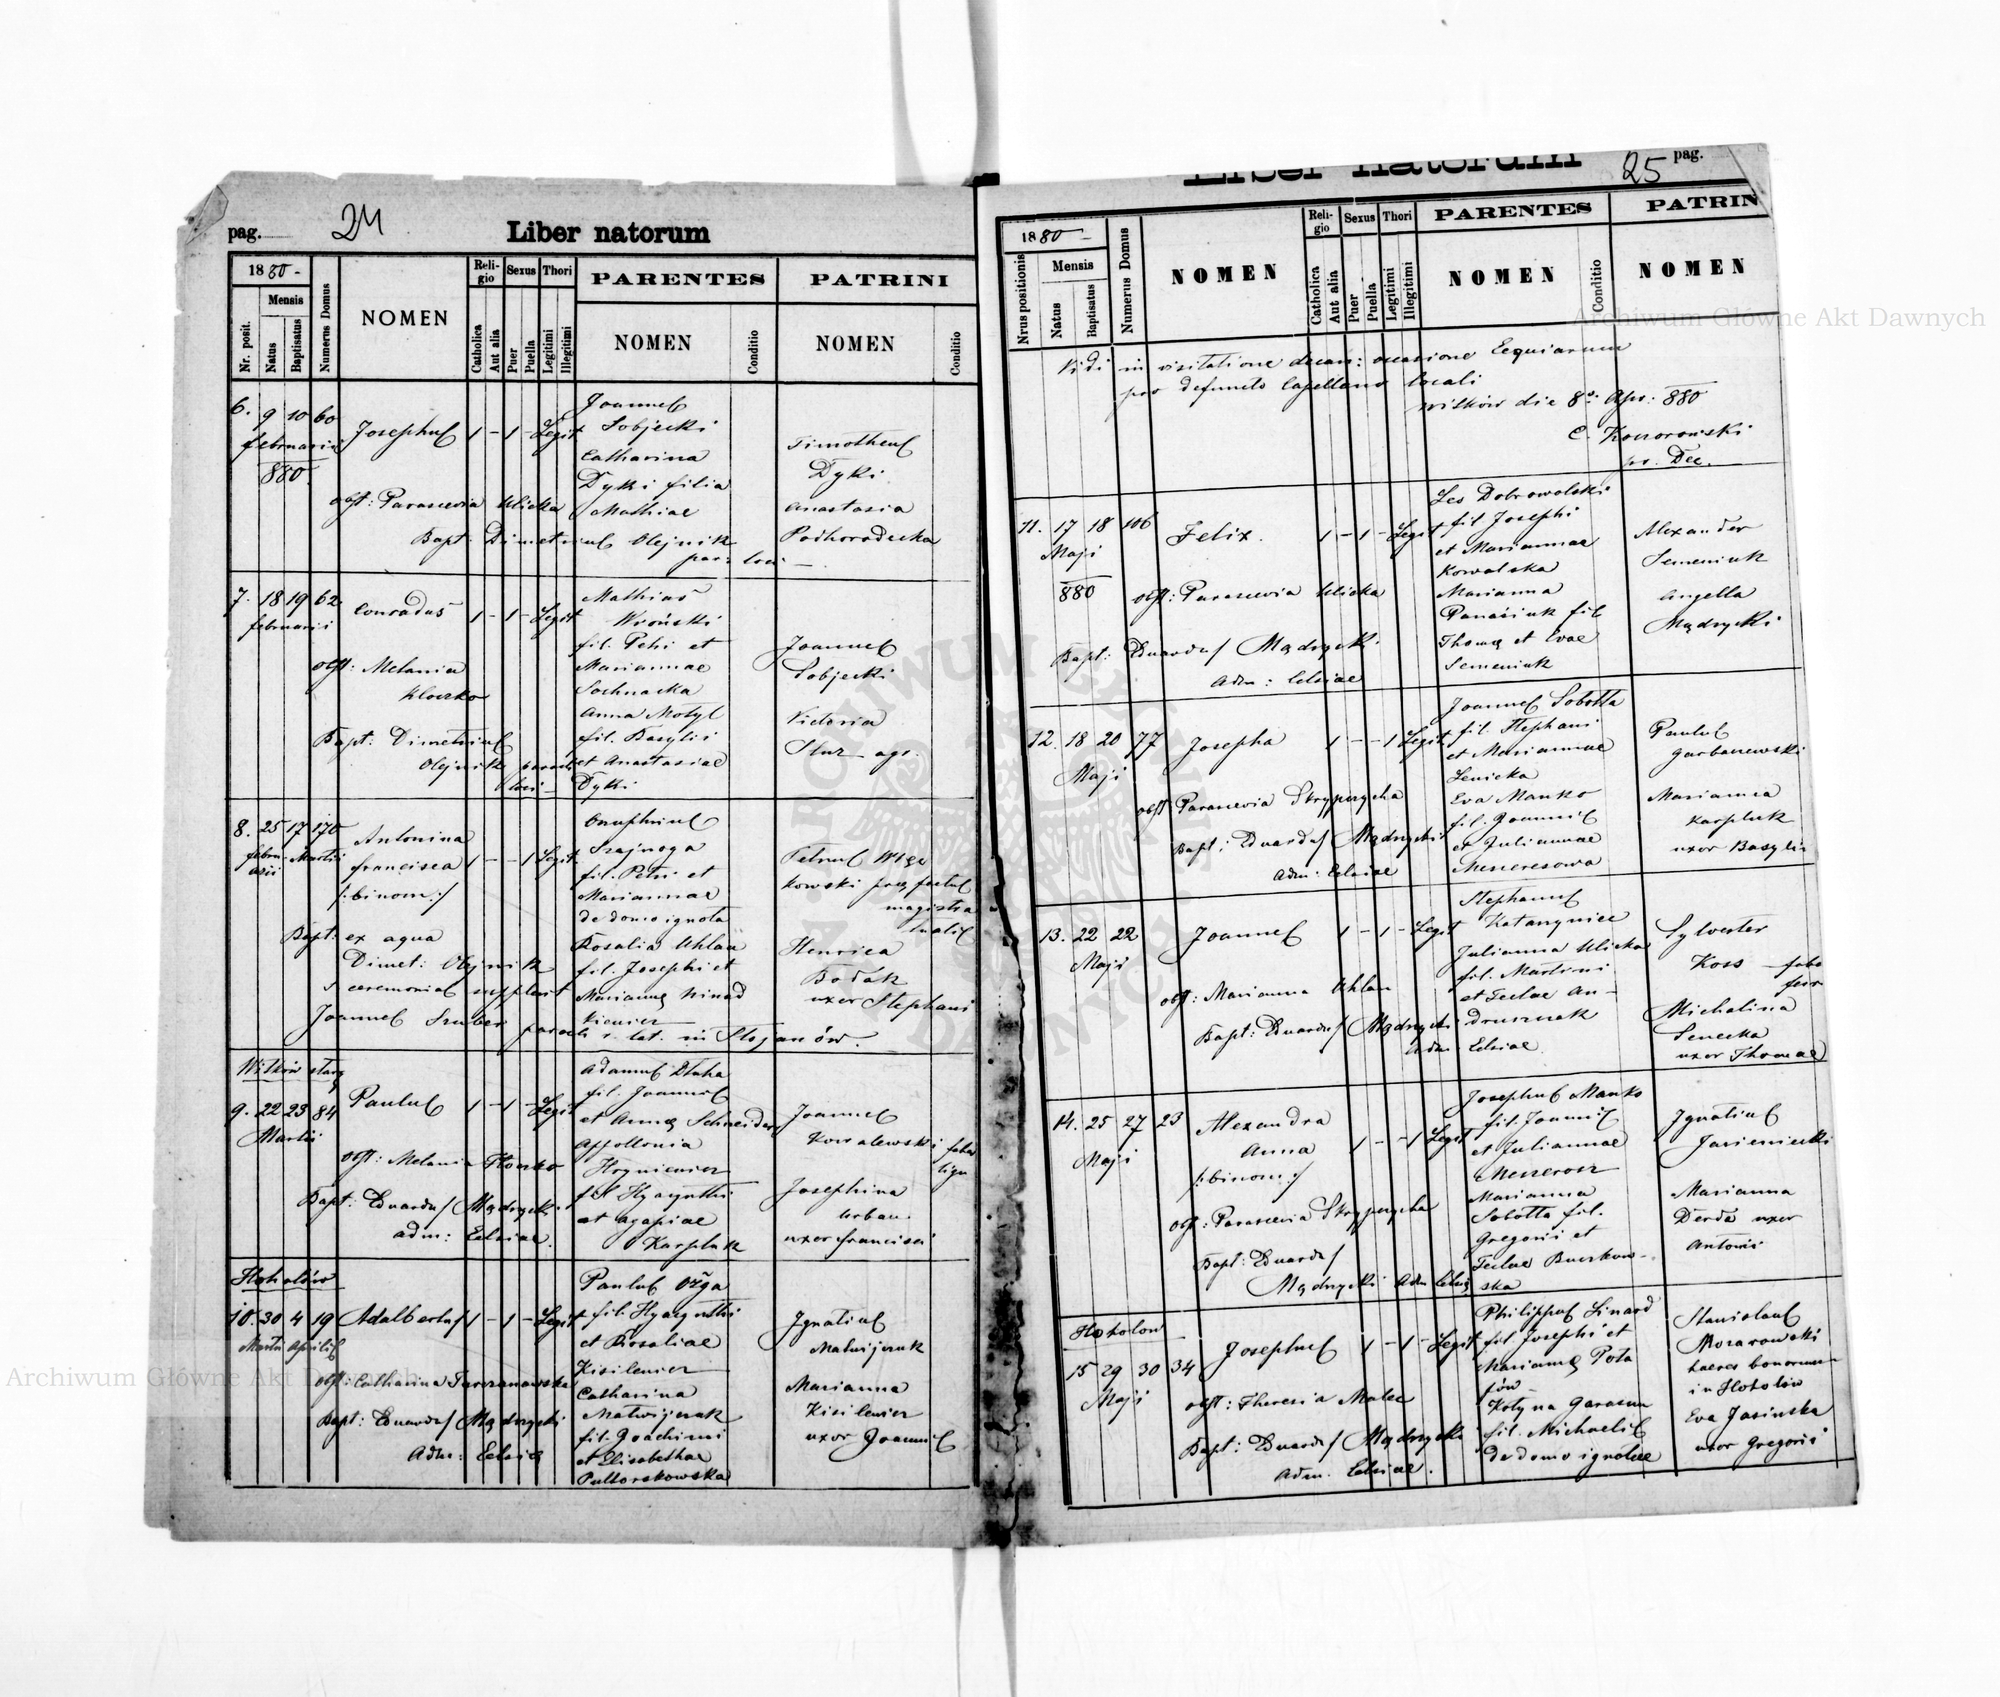 pag. 24
Liber natorum
1880 -
Nr. posit.
Mensis
Natus
Baptisatus
Numerus Domus
NOMEN
Religio
Catholica
Aut alia
Sexus
Puer
Puella
Thori
Legitimi
Illegitimi
PARENTES
NOMEN
Conditio
PATRINI
NOMEN
Conditio
6. 9 10 60
februarii
880.
Josephus 1 - 1 - Legit
obst: Parascevia Ulicka
Bapt. Dimetrius Olejnik
par: loci
Joannes
Sobjecki
Catharina
Dyki filia
Mathiae
Timotheus
Dyki
Anastasia
Podhorodecka
7. 18 19 62
februarii
Conradus 1 - 1 - Legit
obst: Melania
Kloczko
Bapt: Dimetrius
Olejnik paroch
loci
Mathias
Wroński
fil. Petri et
Mariannae
Sochnacka
Anna Motyl
fil. Basylii
et Anastasiae
Dyki
Joannes
Sobjecki
Victoria
agr.
8. 25 17 170
februarii Martii
Antonina
francisca 1 - - 1 Legit.
/:binom:/
Bapt: ex aqua
Dimet: Olejnik
ceremonias supplevit
Joannes Szuber paroch r. lat. in Stojanów.
Onuphrius
Szajnoga
fil. Petri et
Mariannae
de domo ignota
Rosalia Uhlan
fil. Josephi et
Petrus
kowski
Henrica
Bodak
uxor Stephani
Witków stary
9. 22 23 84
Martii
Paulus 1 - 1 - Legit
obst: Melania Kloczko
Bapt: Eduardus Mądrzycki
adm: Eclsiae.
Adamus Dluha
fil. Joannis
et Annę Schneider
Appollonia
Hryniewicz
fil Hyacynthi
et agapiae
Karpluk
Joannes
Kowalewski faber
lign
Josephina
Urban
uxor francisci
Hoholów
10. 30 4 19
Martii Aprilis
Adalbertus 1 - 1 - Legit
obst: Catharina Tarczanowska
Bapt: Eduardus Mądrzycki
Adm: Eclsię
Paulus Ożga
fil. Hyacynthi
et Rosaliae
Kisilewicz
Catharina
Matwijczuk
fil. Joachimi
et Elisabethae
Pultorakowska
Ignatius
Matwijczuk
Marianna
Kisilewicz
uxor Joannis
Liber natorum
25 pag.
1880 -
Nrus positionis
Mensis
Natus
Baptisatus
Numerus Domus
NOMEN
Religio
Catholica
Aut alia
Sexus
Puer
Puella
Thori
Legitimi
Illegitimi
PARENTES
NOMEN
Conditio
PATRIN
NOMEN
Vidi in visitatione decan: occasione Exequiarum
pro defuncto Capellano locali
Witków die 8. Apr: 880
C. Konorowski
Dec.
11. 17 18 106
Maji
880
Felix. 1 - 1 - Legit
obst: Parascevia Ulicka
Bapt: Eduardus Mądrzycki
Adm: Eclsiae
Leo Dobrowolski
fil Josephi
et Mariannae
Kowalska
Marianna
Panasiuk fil
Thomę et Evae
Semeniuk
Alexander
Semeniuk
Angella
Mądrzycki
12. 18 20 77
Maji
Josepha 1 - - 1 Legit
obst Parascevia Skrypczycha
Bapt: Eduardus Mądrzycki
Adm: Eclsiae
Joannes Sobotta
fil. Stephani
et Mariannae
Senicka
Eva Manko
fil. Joannis
et Juliannae
Paulus
Garbaczewski
Marianna
Karpluk
uxor Basylii
13. 22 22
Maji
Joannes 1 - 1 - Legit
obst: Marianna Uhlan
Bapt: Eduardus Mądrzycki
Adm: Eclsiae
Stephanus
Katarzyniec
Julianna Ulicka
fil. Martini
et Teclae An-
druszczak
Sylvester
Koss - faber
ferr
Michalina
Senecka
uxor Thomae
14. 25 27 23
Maji
Alexandra
Anna 1 - - 1 Legit
/:binom:/
obst: Parascevia Skrypczycha
Bapt: Eduardus
Mądrzycki Adm Eclsię
Josephus Manko
fil. Joannis
et Juliannae
Meszerosz
Marianna
Sobotta fil.
Gregorii et
Teclae Buczkow-
ska
Ignatius
Jasieniecki
Marianna
Derda uxor
Antonii
Hoholow
15 29 30 34
Maji
Josephus 1 - 1 - Legit
obst: Theresia Malec
Bapt: Eduardus Mądrzycki
Adm. Eclsiae.
Philippus Linard
fil. Josephi et
Mariannę Pota
fów
Kotyna Garasun
fil. Michaelis
de domo ignotae
Stanislaus
Morarowski
haeres bonorum
in Hoholów
Eva Jasinska
uxor Gregorii
Archiwum Główne Akt Dawnych
Archiwum Główne Akt Dawnych
ARCHIWUM GŁÓWNE AKT DAWNYCH